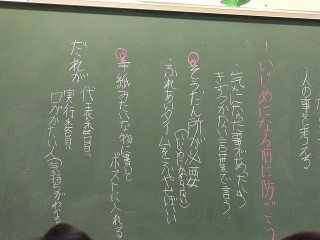 ・人の事を考える
一いじめになる前に防ごう
・気になった事があったら
きずつかない言葉で言う。
そうだん所が必要
ふれ合いタイムをふやせばいい
手紙みたいな物に書いて
ポストに入れる
だれが
代表委員
実行委員
口がかたい人